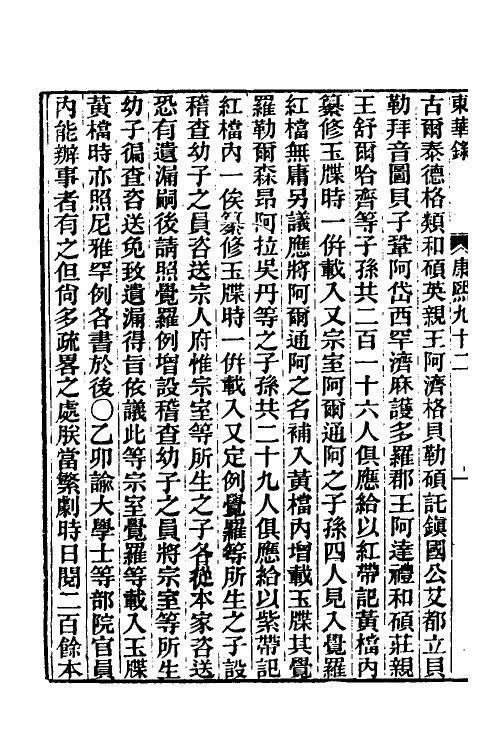 東華錄 康熙九十二 一
古爾泰德格類和碩英親王阿濟格貝勒碩託鎭國公艾都立貝
勒拜音圖貝子鞏阿岱西罕濟麻護多羅郡王阿達禮和碩莊親
王舒爾哈齊等子孫共二百一十六人俱應給以紅帶記黃檔內
纂修玉牒時一併載入又宗室阿爾通阿之子孫四人見入覺羅
紅檔無庸另議應將阿爾通阿之名補入黃檔內增載玉牒其覺
羅勒爾森昂阿拉吳丹等之子孫共二十九人俱應給以紫帶記
紅檔內一俟纂修玉牒時一併載入又定例覺羅等所生之子設
稽查幼子之員咨送宗人府惟宗室等所生之子各從本家咨送
恐有遺漏嗣後請照覺羅例增設稽查幼子之員將宗室等所生
幼子徧查咨送免致遺漏得旨依議此等宗室覺羅等載入玉牒
黃檔時亦照尼雅罕例各書於後○乙卯諭大學士等部院官員
內能辦事者有之但尙多疏畧之處朕當繁劇時日閱二百餘本